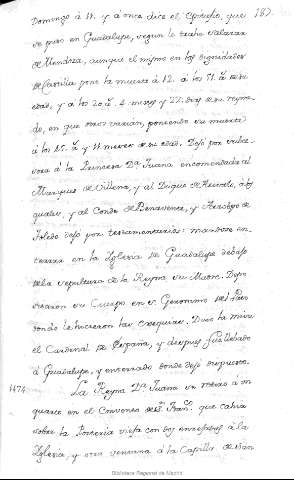 187.
Domingo á 11. y á once dice el Epitafio, que
se puso en Guadalupe, segun lo trahe Salazar
de Mendoza, aunque el mismo en las Dignidades
de Castilla pone la muerte á 12. á los 51. a.s de su
edad, y á los 20. a.s 4. meses y 22. dias de su reyna-
do, en que otros varian, poniendo su muerte
á los 45. a.s y 11 meses de su edad. Dejo por subce-
sora á la Princesa D.ª Juana encomendada al
Marques de Villena, y al Duque de Arevalo, á los
quales, y al Conde de Benavente, y Arzobpo de
Toledo dejo por testamentarios: mandose en-
terrar en la Iglesia de Guadalupe debajo
de la sepultura de la Reyna su Madre. Depo-
sitaron su Cuerpo en S. Geronimo del Paso
donde le hicieron las exequias. Dixo la misa
el Cardenal de España, y despues fue llevado
á Guadalupe, y enterrado donde dejó dispuesto.
1474. La Reyna D.ª Juana se retiro á un
quarto en el Convento de S.n Fran.co que cahia
sobre la Porteria vieja con dos
Iglesia, y otra ventana á la Capilla de San
Biblioteca Regional de Madrid